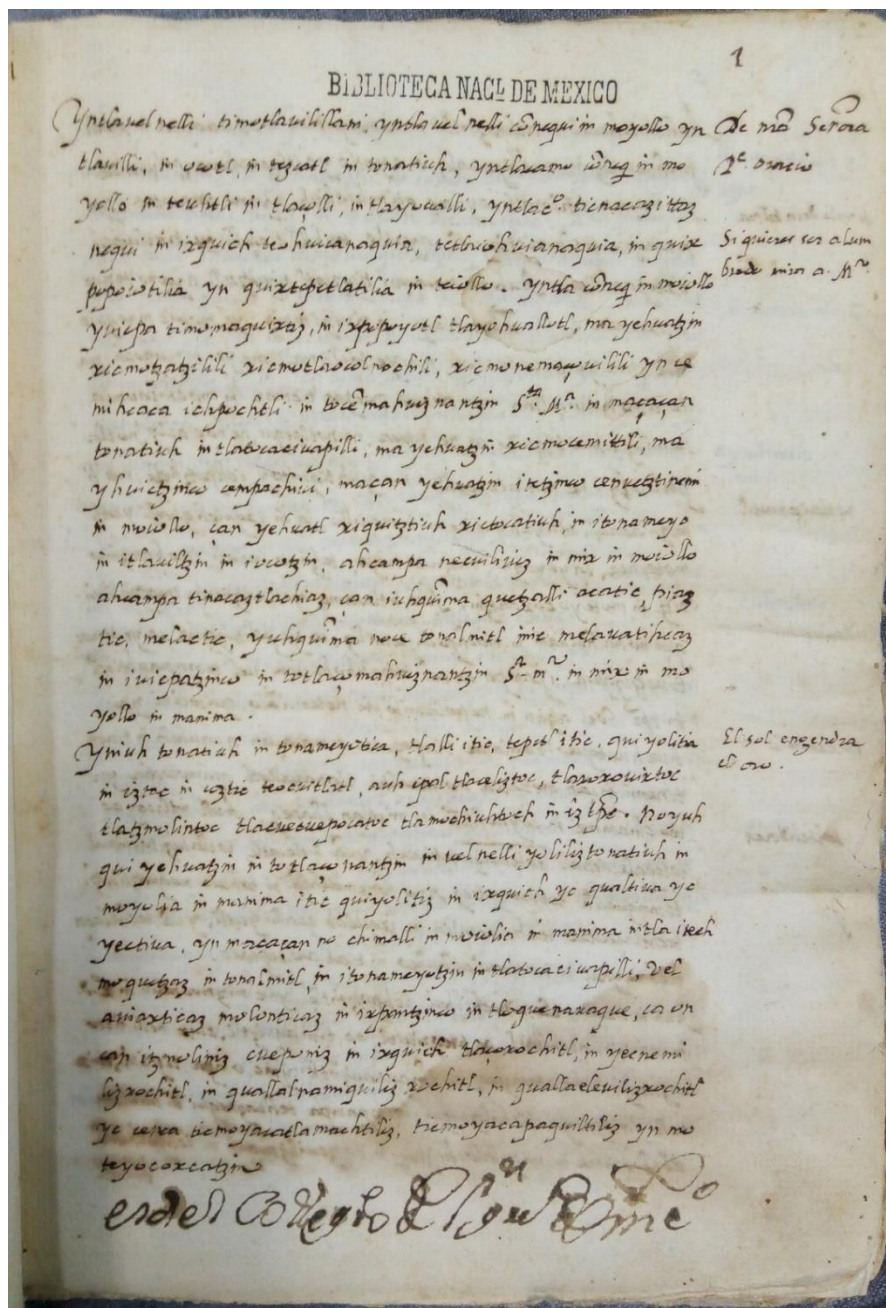 1
BIBLIOTECA NACL DE MEXICO
Yntlavel nelli timotlavilillani, yntlavel nelli cōnequi in moyollo yn
tlavilli, in ocotl, in tezcatl in tonatiuh, yntlacamo cōneq̄ in mo
yollo in tlaçolli, in tlayovalli, ticnacazittaz
nequi in ixquich in quix
popoiotilia yn quixtepetlatilia in teiollo. yntla cōneq̄ in moiollo
timomaquixtiz, in ixpopoyotl tlayohuallotl, ma yehuatzin
xicmotzatzilili xicmotlaocolnochili, xicmonemaquilili yn ce
mihcaca ichpochtli in tocēmahuiznantzin Sta. Ma. in maçaçan
tonatiuh in tlatocacivapilli, ma yehuatzin xicmocemittili, ma
yhuictzinco cempachivi, maçan yehuatzin itetzinco
in moiollo, çan yehuatl xiquitztiuh xictocatiuh, in itonameyo
in itlaviltzin in iocotzin, ahcampa necuiliviz in mix in moiollo
ahcampa tinacaztlachiaz, çan iuhquīma quetzalli acatic, piaz
tic, melactic, yuhquīma noce tonalmitl inic melavatihcaz
in ivicpatzinco in totlaçomahuiznantzin Sta. ma. in mix in mo
yollo in manima.
Yniuh tonatiuh in tonameyotica, tlalli itic, tepetl itic, quiyolitia
in iztac in coztic teocuitlatl, auh tlaceliztoc, tlaxoxouixtoc
tlatzmolintoc tlacuecuepocatoc tlamochiuhtoch in īz tp̄c. No yuh
qui yehuatzin in totlaçonantzin in vel nelli yoliliztonatiuh in
moyolia in manima itic quiyolitiz in ixquich yc qualtiva yc
yectiva, yn maçaçan no chimalli in moiolia in manima intla itech
moquetzaz in tonalmitl, in itonameyotzin in tlatocacivapilli, vel
aviaxticaz molonticaz in ixpantzinco in tloque navaque, ca on
can itzmoliniz cueponiz in ixquich tlaçoxochitl, in yecnemi
lizxochitl, in quallalnamiquiliz xochitl, in quallaelevilizxochitl
yc cenca ticmoyacatlamachtiliz, ticmoyacapaquiltiliz yn mo
teyocoxcatzin
es del Collegio de
De nrā Señora
Pe. oracio
Si quieres ser alum
brado mira a Ma.
El sol engendra
el oro.